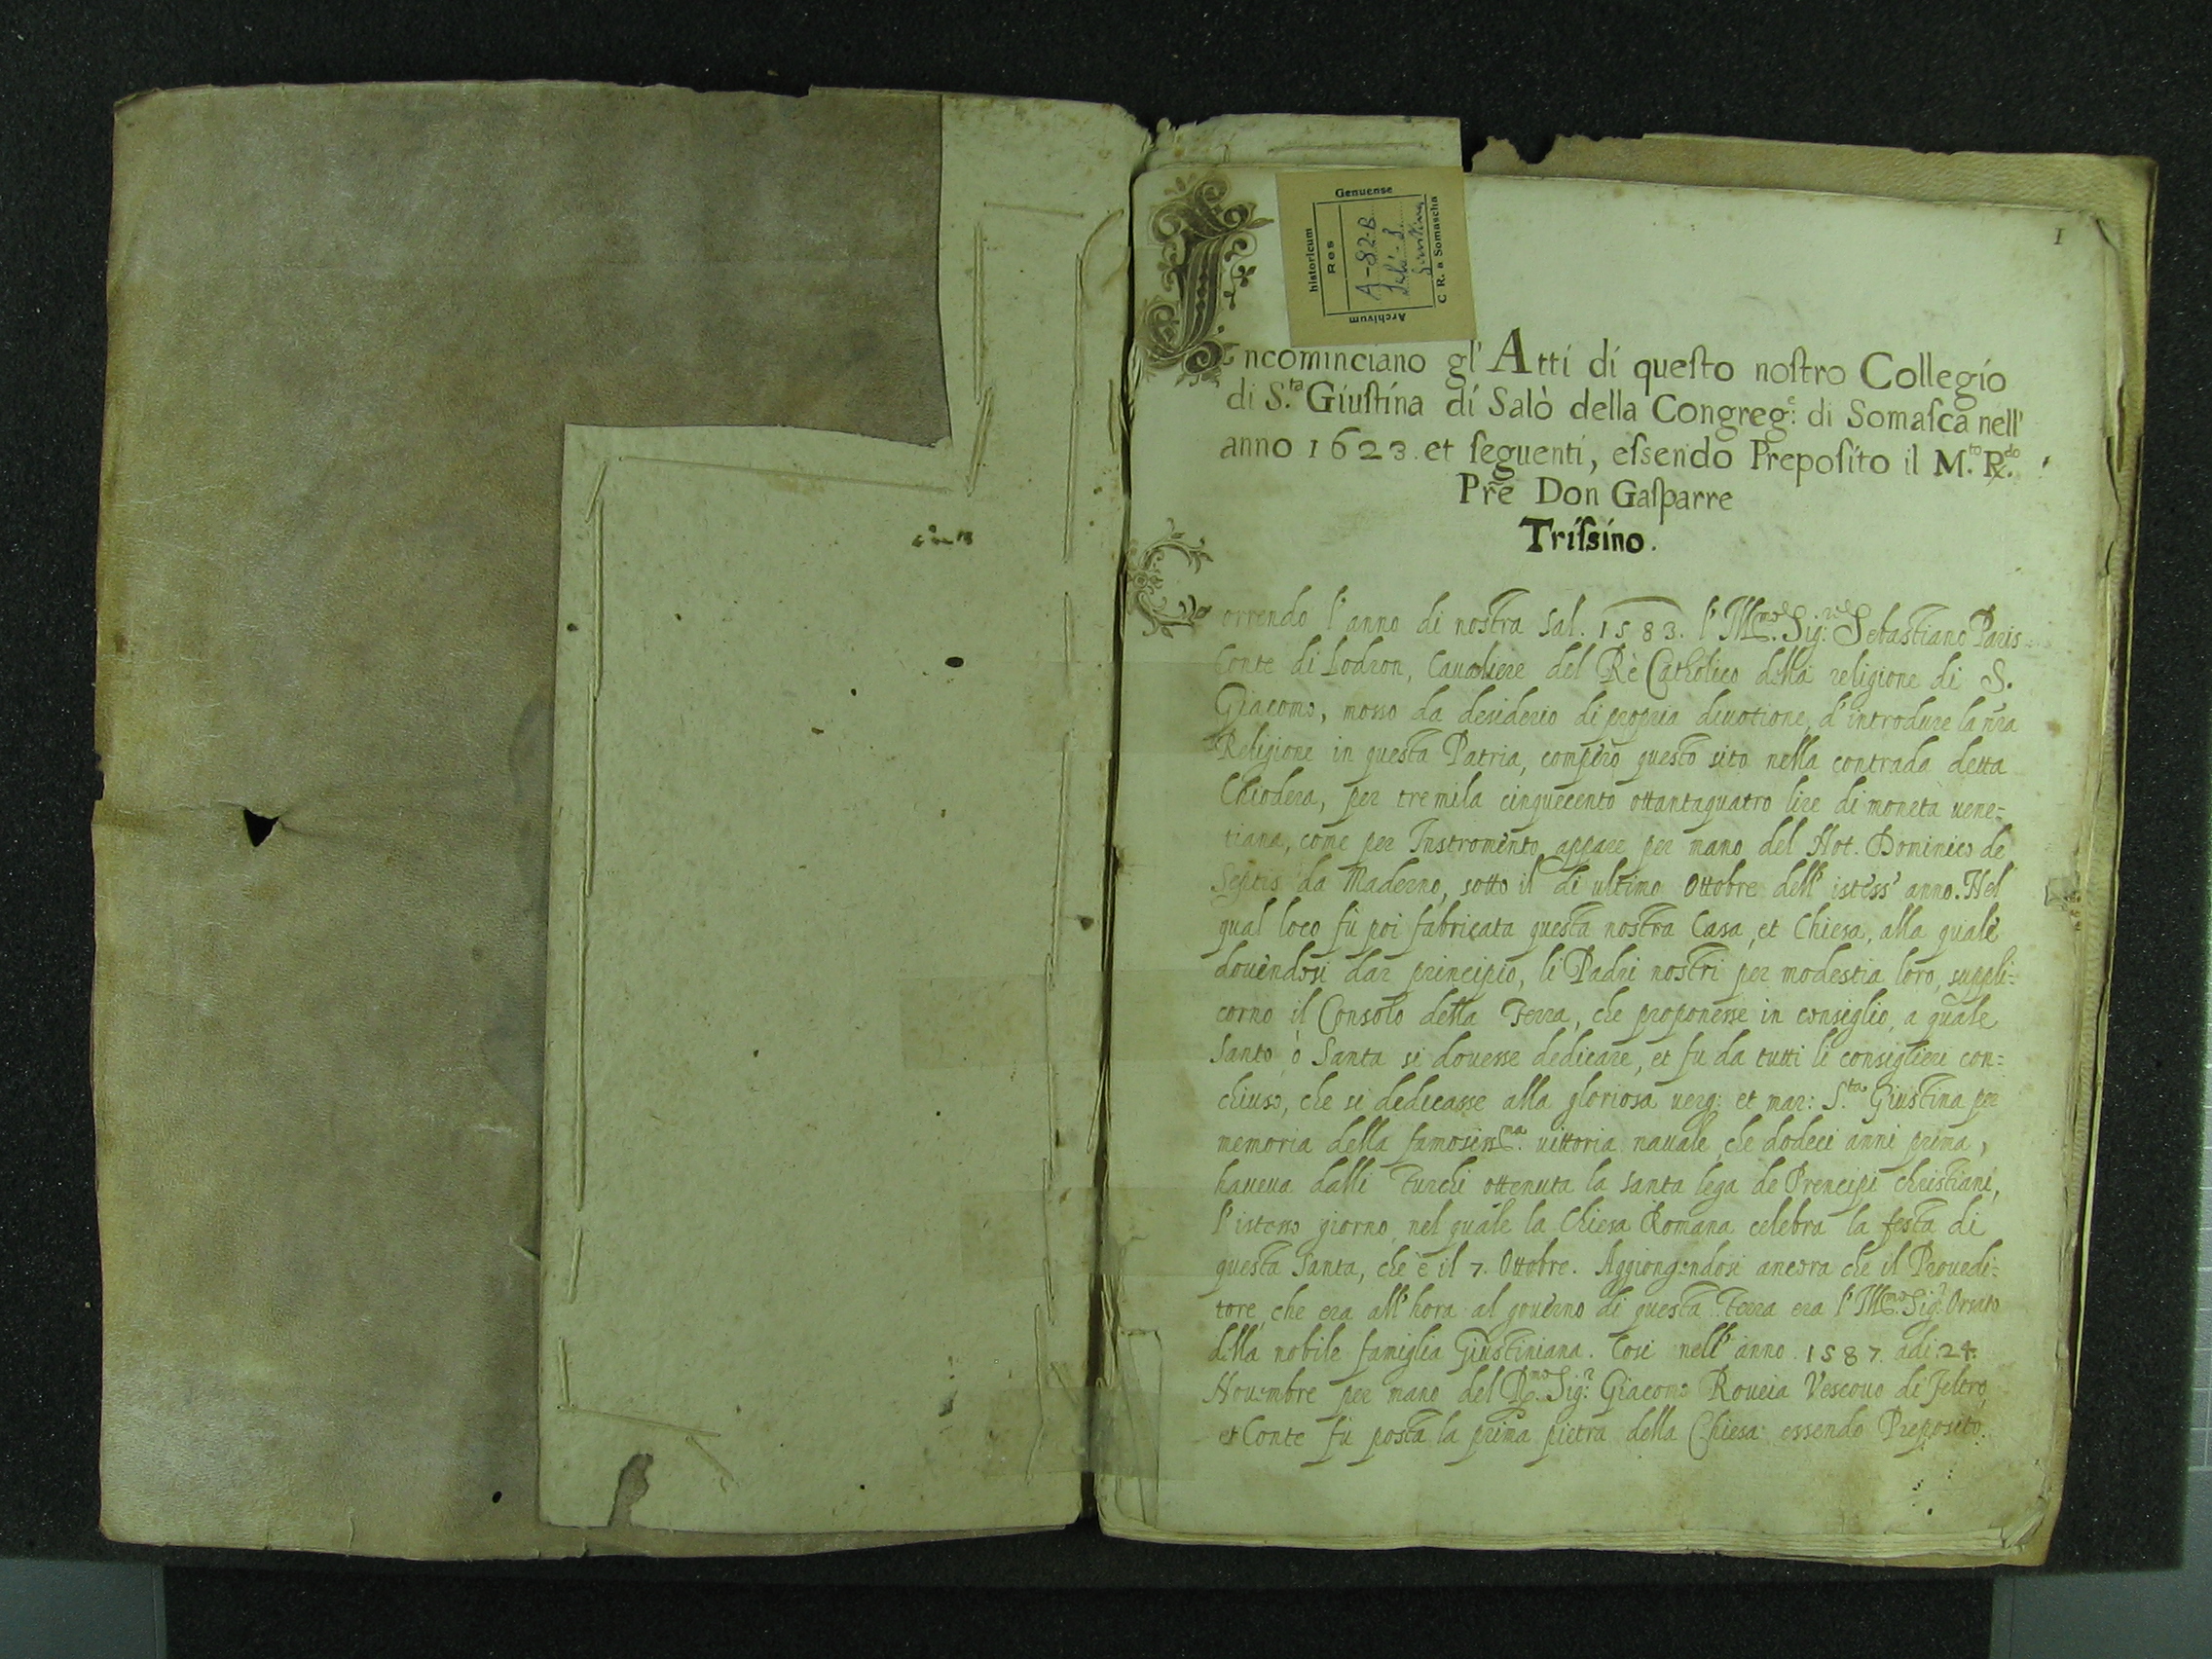 1
Genuense
historicum
Res
A-82-B
Salò - S.
Giustina
Archivum
C R. a Somascha
Incominciano gl' Atti di questo nostro Collegio
di S.ta Giustina di Salò della Congreg.e di Somasca nell'
anno 1623. et seguenti, essendo Preposito il M.to R.do
Prē Don Gasparre
Trissino.
Correndo l'anno di nostra Sal. 1583. l'Ill.mo Sig.re Sebastiano Paris
Conte di Lodron, Cavaliere del Rè Catholico della religione di S.
Giacomo, mosso da desiderio di propria divotione, d'introdure la nr̃a
Religione in questa Patria, comperò questo sito nella contrada detta
Chiodera, per tremila cinquecento ottantaquatro lire di moneta vene=
tiana, come per Instromento appare per mano del Not. Dominico de
Septis da Maderno, sotto il di ultimo Ottobre dell' istess' anno. Nel
qual loco fù poi fabricata questa nostra Casa, et Chiesa, alla quale
dovendosi dar principio, li Padri nostri per modestia loro, suppli=
corno il Consolo della Terra, che proponesse in consiglio, a quale
Santo, ò Santa si dovesse dedicare, et fu da tutti li consiglieri con=
chiuso, che si dedicasse alla gloriosa verg: et mar: S.ta Giustina per
memoria della famosiss.ma vittoria navale, che dodeci anni prima,
haveva dalli Turchi ottenuta la santa lega de Prencipi christiani,
l'istesso giorno, nel quale la Chiesa Romana celebra la festa di
questa Santa, che è il 7. Ottobre. Aggiongendosi ancora che il Provedi=
tore, che era all'hora al governo di questa Terra era l'Ill.mo Sig.r Orsato
della nobile famiglia Giustiniana. Cosi nell'anno 1587. adi 24.
Novembre per mano del R.mo Sig.r Giacomo Roveia Vescovo di Feltro,
et Conte fù posta la prima pietra della Chiesa essendo Preposito